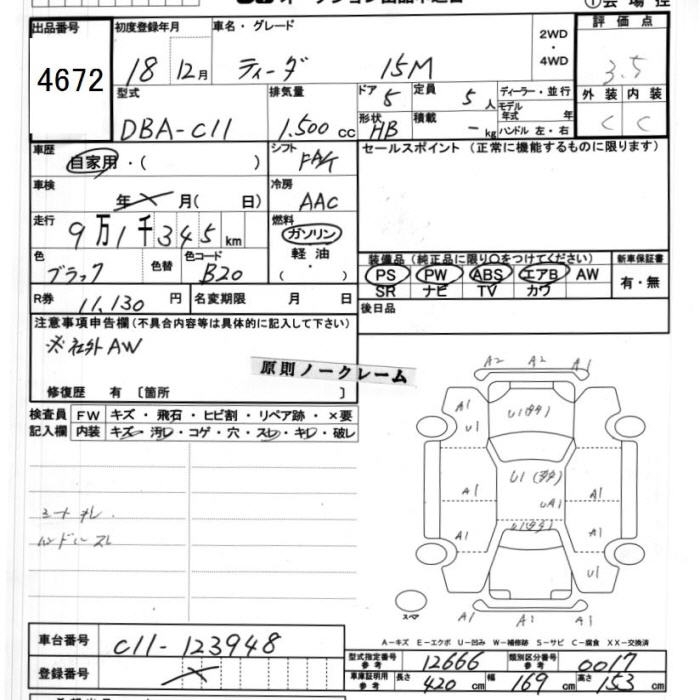 出品番号 初度登録年月 車名・グレード 2WD・4WD 評価点
4672 18 12月 ティーダ 15M 3.5
型式 排気量 ドア 定員 ディーラー・並行 外装 内装
DBA-C11 1.500cc 5 5人 モデル年式 年 C C
形状 HB 積載 -kg ハンドル 左・右
車歴 自家用・( ) シフト FAT セールスポイント(正常に機能するものに限ります)
車検 年 月( 日) 冷房 AAC
走行 9万1千345km 燃料 ガソリン
軽油・( )
色 ブラック 色替 色コード B20
装備品(純正品に限り○をつけてください) 新車保証書
PS PW ABS エアB AW 有・無
SR ナビ TV カワ
R券 11,130円 名変期限 月 日 後日品
注意事項申告欄(不具合内容等は具体的に記入して下さい)
※社外AW
原則ノークレーム
修復歴 有〔箇所 〕
検査員 FW キズ・飛石・ヒビ割・リペア跡・×要
記入欄 内装 キズ・汚レ・コゲ・穴・スレ・キレ・破レ
A2 A2 A1
A1 U1(タタ)
U1
U1(タタ)
A1 UA1 A1
U1(タタ)
A1 A1
U1
スペア A1 A1 A1
A-キズ E-エクボ U-凹み W-補修跡 S-サビ C-腐食 XX-交換済
車台番号 C11-123948
登録番号
型式指定番号 参考 12666 類別区分番号 参考 0017
車庫証明用 参考 長さ 420cm 幅 169cm 高さ 153cm